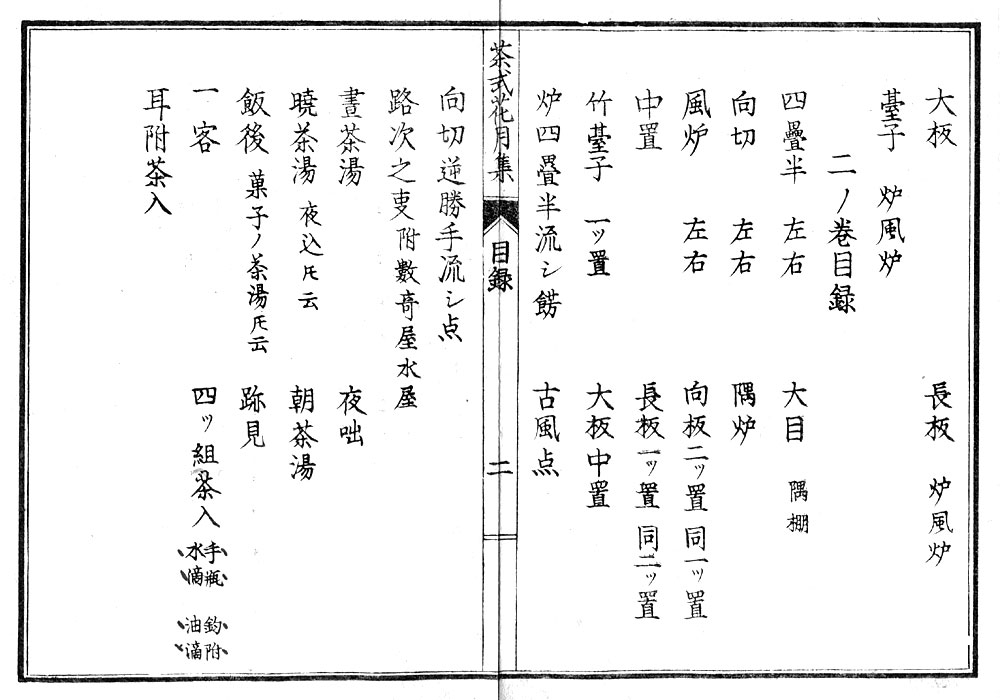 大板　長板　炉風炉
臺子　炉風炉
二ノ巻目録
四疊半　左右　大目　隅棚
向切　左右　隅炉
風炉　左右　向板二ッ置　同一ッ置
中置　長板一ッ置　同二ッ置
竹臺子　一ッ置　大板中置
炉四疊半流シ餝　古風点
茶式花月集　目録　二
向切逆勝手流シ点
路次之叓附數竒屋水屋
晝茶湯　夜咄
曉茶湯　夜込圧云　朝茶湯
飯後　菓子ノ茶湯圧云　跡見
一客　四ッ組茶入　手瓶　水滴　釣附　油滴
耳附茶入